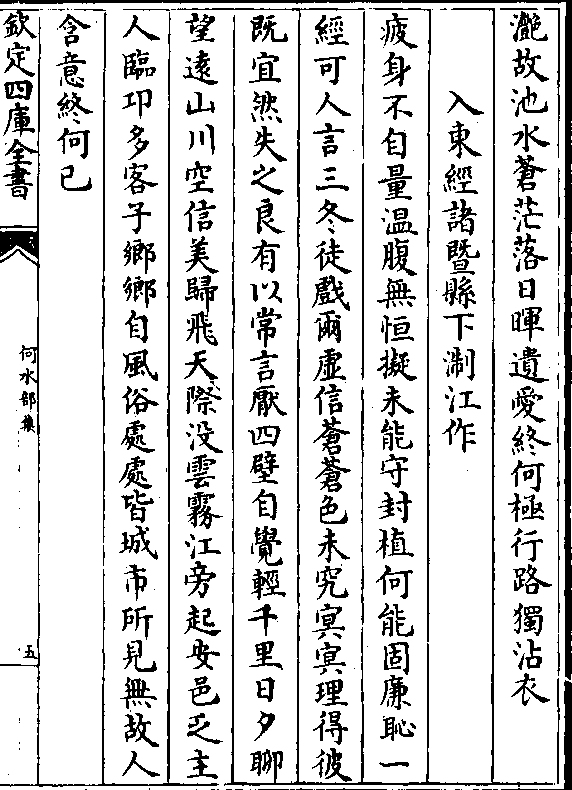 灔故池水蒼茫落日暉遺愛終何極行路獨沾衣
入東經諸暨縣下淛江作
疲身不自量温腹無恒擬未能守封植何能固廉恥一
經可人言三冬徒戲爾虚信蒼蒼色未究冥冥理得彼
既宜然失之良有以常言厭四壁自覺輕千里日夕聊
望遠山川空信美歸飛天際没雲霧江旁起安邑乏主
人臨邛多客子鄉鄉自風俗處處皆城市所見無故人
含意終何已
欽定四庫全書
何水部集
五